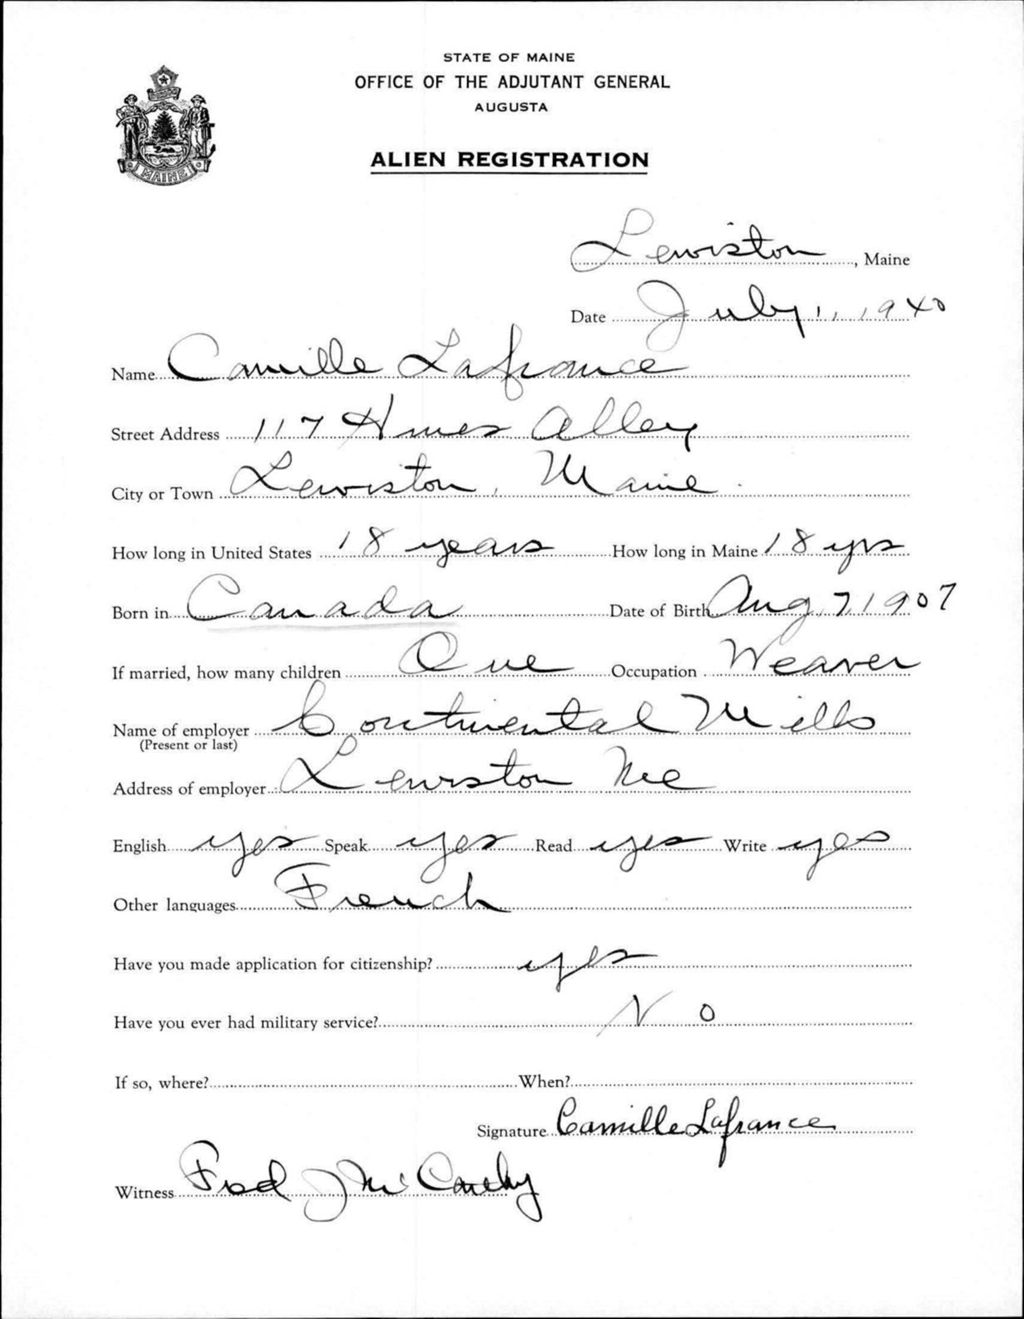 STATE OF MAINE
OFFICE OF THE ADJUTANT GENERAL
AUGUSTA
ALIEN REGISTRATION
MAINE
Lewiston, Maine
Date July 1, 1940
Name Camille Lafrance
Street Address 117 Hines Alley
City or Town Lewiston, Maine.
How long in United States 18 years How long in Maine 18 yrs
Born in Canada Date of Birth Aug 7, 1907
If married, how many children One Occupation Weaver
Name of employer Continental Mills
(Present or last)
Address of employer Lewiston Me
English yes Speak yes Read yes Write yes
Other languages French
Have you made application for citizenship? yes
Have you ever had military service? No
If so, where? When?
Signature Camille Lafrance
Witness Fred J Mc